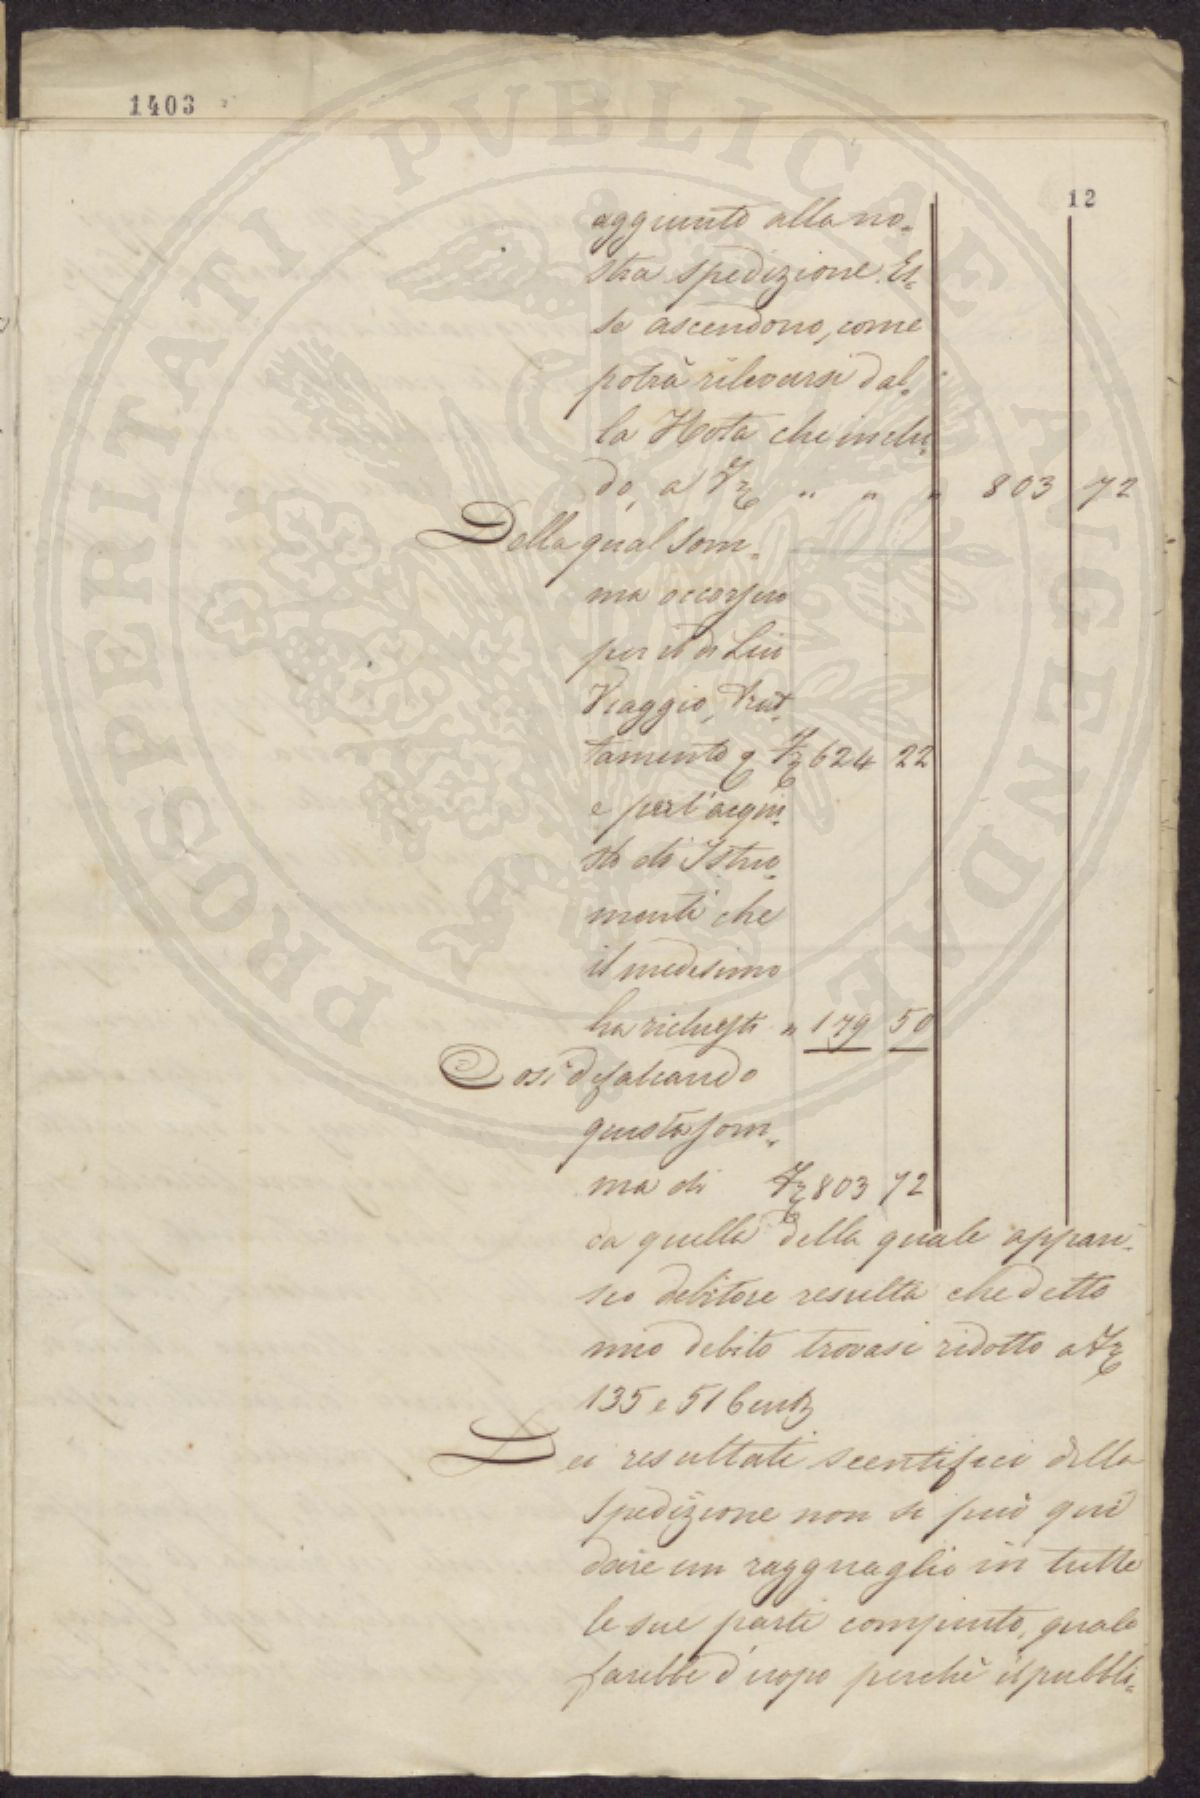 1403
12
aggiunto alla no=
stra spedizione. Es=
se ascendono, come
potrà rilevarsi dal=
la Nota che inclu=
do, a Fz " " " 803 72
Dalla qual som=
ma occorsero
per il di Lui
Viaggio, Trat=
tamento & Fz 624 22
e per l'acqui=
sto di Istru=
menti che
il medesimo
ha richiesti " 179 50
Così defalcando
questa som=
ma di Fz 803 72
da quella della quale appari=
sco debitore resulta che detto
mio debito trovasi ridotto a Fz
135 e 51 Centi
Dei resultati scentifici della
spedizione non si può quì
dare un ragguaglio in tutte
le sue parti compiuto, quale
sarebbe d'uopo perchè il pubbli=
PROSPERITATI PVBLICAE AVGENDAE